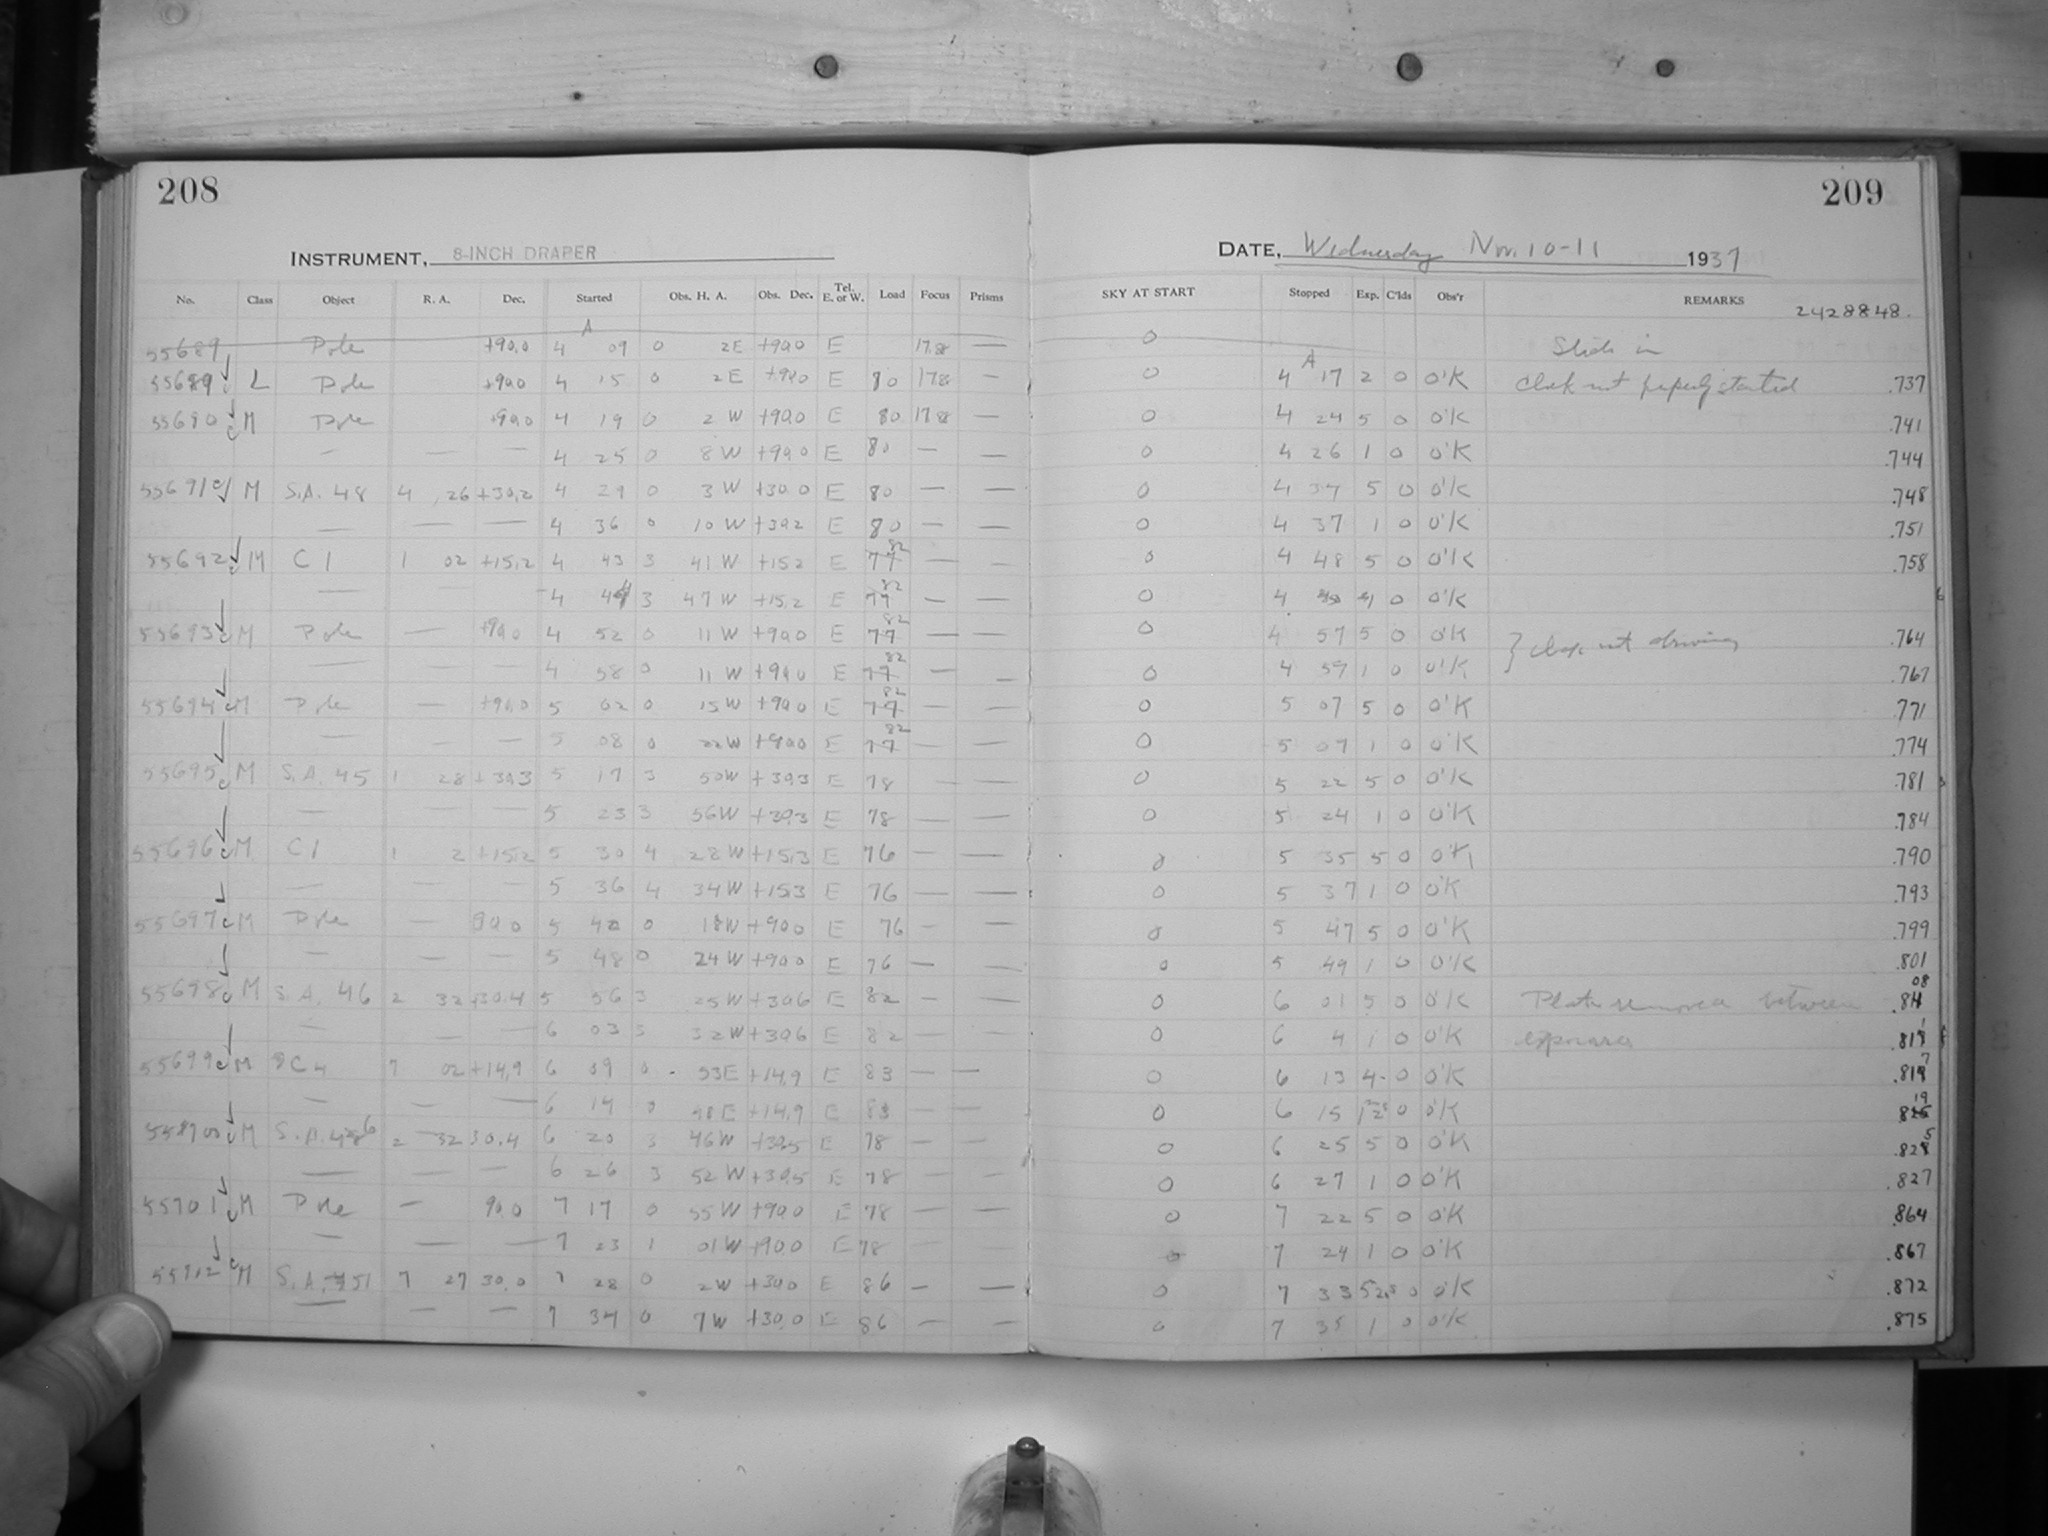 208
209
INSTRUMENT, 8-INCH DRAPER
DATE, Wednesday Nov. 10-11 1937
No. Class Object R. A. Dec. Started Obs. H. A. Obs. Dec. Tel. E. or W. Load Focus Prisms SKY AT START Stopped Exp. C'lds Obs'r REMARKS
2428848.
55689 Pole +90.0 4 A 09 0 2E +90.0 E 17.8 — 0 Slide in
55689 L Pole +90.0 4 15 0 2E +90.0 E 80 17.8 — 0 4 A 17 2 0 O'K Clock not properly started .737
55690 M Pole +90.0 4 19 0 2 W +90.0 E 80 17.8 — 0 4 24 5 0 O'K .741
— — — 4 25 0 8 W +90.0 E 80 — — 0 4 26 1 0 O'K .744
55691 M S.A. 48 4 26 +30.2 4 29 0 3 W +30.0 E 80 — — 0 4 34 5 0 O'K .748
— — — 4 36 0 10 W +30.2 E 80 — — 0 4 37 1 0 O'K .751
55692 M C 1 1 02 +15.2 4 43 3 41 W +15.2 E 77 82 — — 0 4 48 5 0 O'K .758
— 4 3 47 W +15.2 E 77 82 — — 0 4 0 O'K
55693 M Pole — +90.0 4 52 0 11 W +90.0 E 77 82 — — 0 4 57 5 0 O'K } clock not driving .764
— — — 4 58 0 11 W +90.0 E 77 82 — — 0 4 59 1 0 O'K .767
55694 M Pole — +90.0 5 02 0 15 W +90.0 E 77 82 — — 0 5 07 5 0 O'K .771
— — — 5 08 0 22 W +90.0 E 77 82 — — 0 5 09 1 0 O'K .774
55695 M S.A. 45 1 28 +30.3 5 17 3 50 W +30.3 E 78 — — 0 5 22 5 0 O'K .781
— — — 5 23 3 56 W +30.3 E 78 — — 0 5 24 1 0 O'K .784
55696 M C 1 1 2 +15.2 5 30 4 28 W +15.3 E 76 — — 0 5 35 5 0 O'K .790
— — — 5 36 4 34 W +15.3 E 76 — — 0 5 37 1 0 O'K .793
55697 M Pole — 90.0 5 42 0 18 W +90.0 E 76 — — 0 5 47 5 0 O'K .799
— — — 5 48 0 24 W +90.0 E 76 — — 0 5 49 1 0 O'K .801
55698 M S.A. 46 2 32 +30.4 5 56 3 25 W +30.6 E 82 — — 0 6 01 5 0 O'K Plate removed between 08
— — — 6 03 3 32 W +30.6 E 82 — — 0 6 4 1 0 O'K exposures
55699 M C 4 7 02 +14.9 6 09 0 53 E +14.9 E 83 — — 0 6 13 4 0 O'K
— — — 6 14 0 48 E +14.9 E 83 — — 0 6 15 1 0 O'K 19
55700 M S.A. 46 2 32 30.4 6 20 3 46 W +30.5 E 78 — — 0 6 25 5 0 O'K
— — — 6 26 3 52 W +30.5 E 78 — — 0 6 27 1 0 O'K .827
55701 M Pole — 90.0 7 17 0 55 W +90.0 E 78 — — 0 7 22 5 0 O'K .864
— — — 7 23 1 01 W +90.0 E 78 — — 0 7 24 1 0 O'K .867
55702 M S.A. 51 7 27 30.0 7 28 0 2 W +30.0 E 86 — — 0 7 33 5 0 O'K .872
— — — 7 34 0 7 W +30.0 E 86 — — 0 7 35 1 0 O'K .875